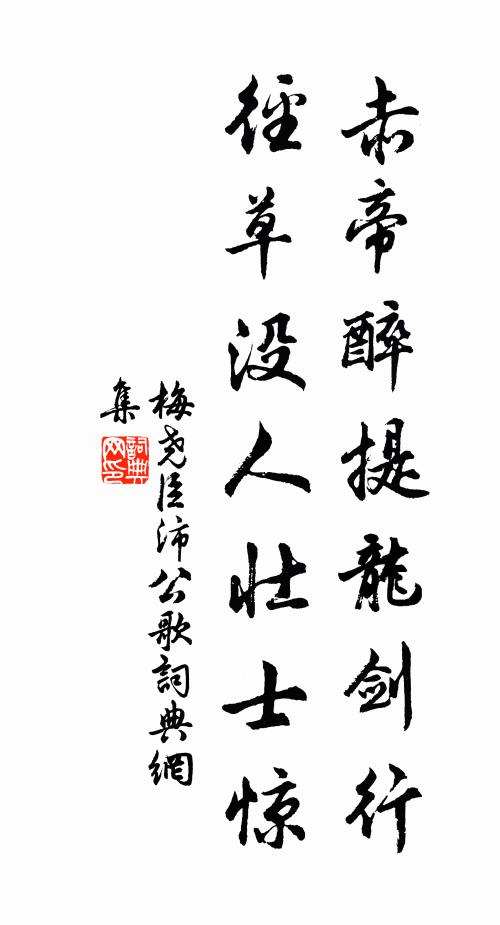 赤帝醉提龍劍行
徑草没人壯士惊
梅尧臣沛公歌詞典網
集
詞典
网印